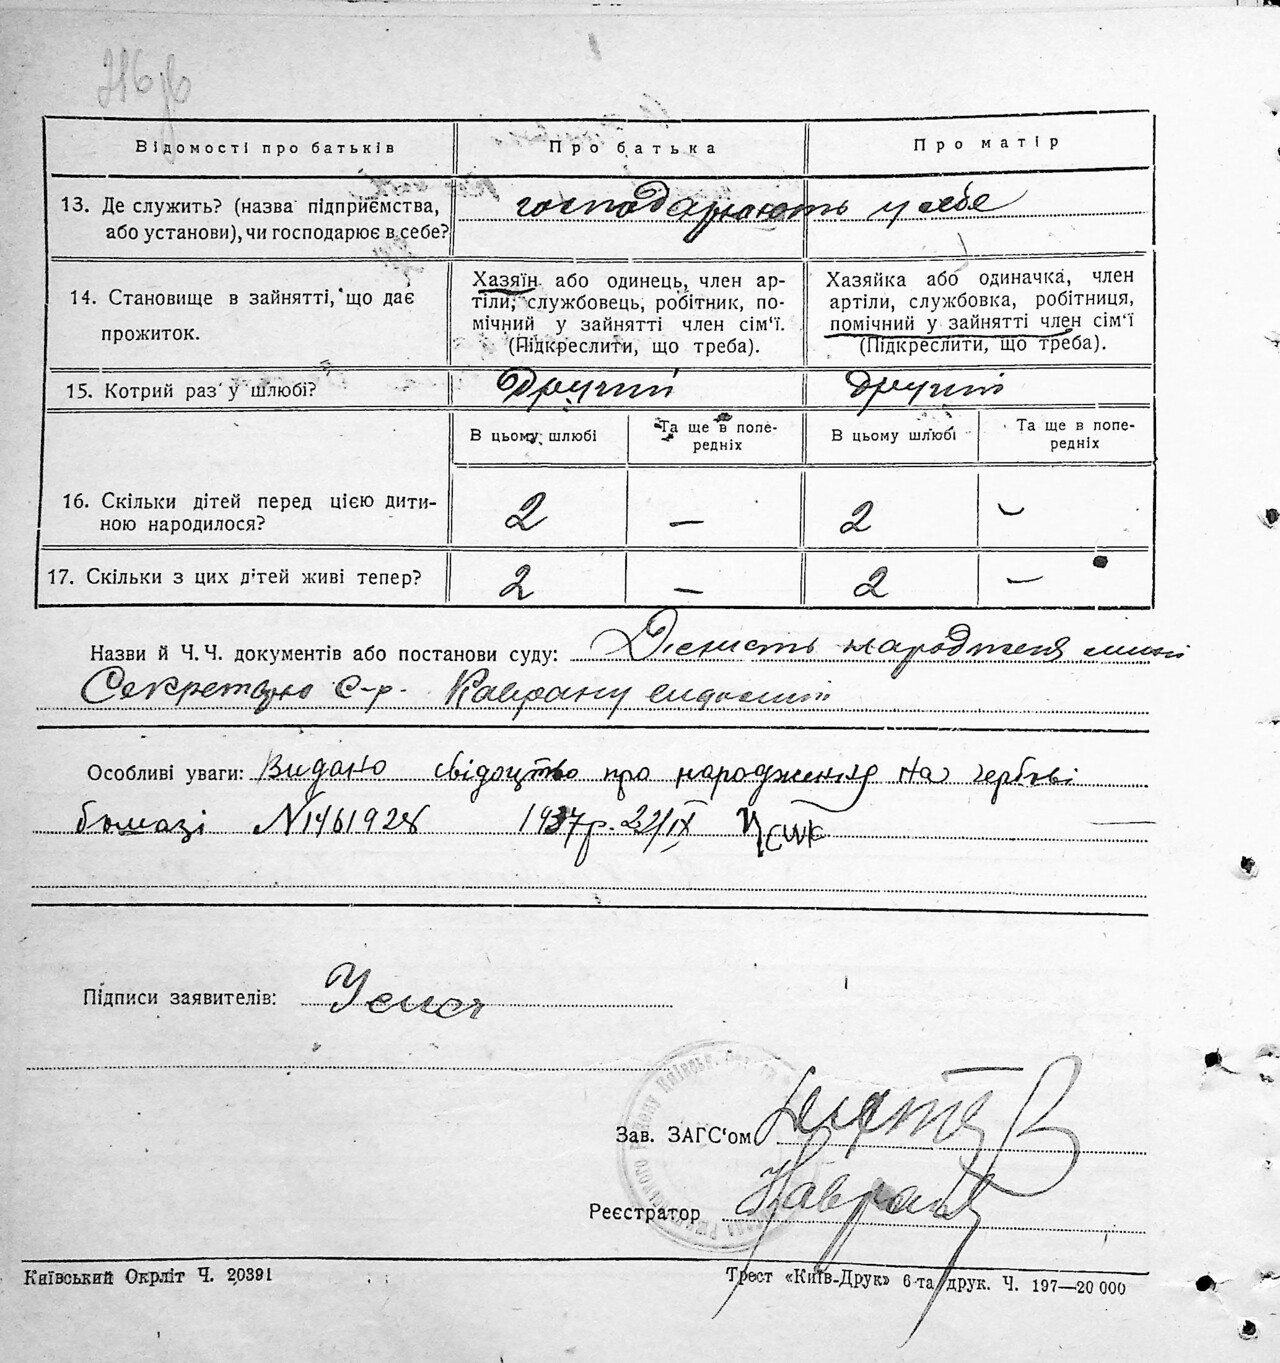 216 зв
Відомості про батьків
Про батька
Про матір
13. Де служить? (назва підприємства,
або установи), чи господарює в себе?
господарюють у себе
14. Становище в зайнятті, що дає
прожиток.
Хазяїн або одинець, член ар-
тіли, службовець, робітник, по-
мічний у зайнятті член сім'ї.
(Підкреслити, що треба).
Хазяйка або одиначка, член
артіли, службовка, робітниця,
помічний у зайнятті член сім'ї
(Підкреслити, що треба).
15. Котрий раз у шлюбі?
Другий
Другий
В цьому шлюбі
Та ще в попе-
редніх
В цьому шлюбі
Та ще в попе-
редніх
16. Скільки дітей перед цією дити-
ною народилося?
2
—
2
—
17. Скільки з цих дітей живі тепер?
2
—
2
—
Назви й Ч. Ч. документів або постанови суду: народженя
Секретарю С-р. Каврану
Особливі уваги: Видано свідоцтво про народження на гербові
бомазі N1461928 1937р. 22/IX
Підписи заявителів:
Зав. ЗАГС'ом
Реєстратор
Київський Окрліт Ч. 20391
Трест «Київ-Друк» 6-та друк. Ч. 197—20 000